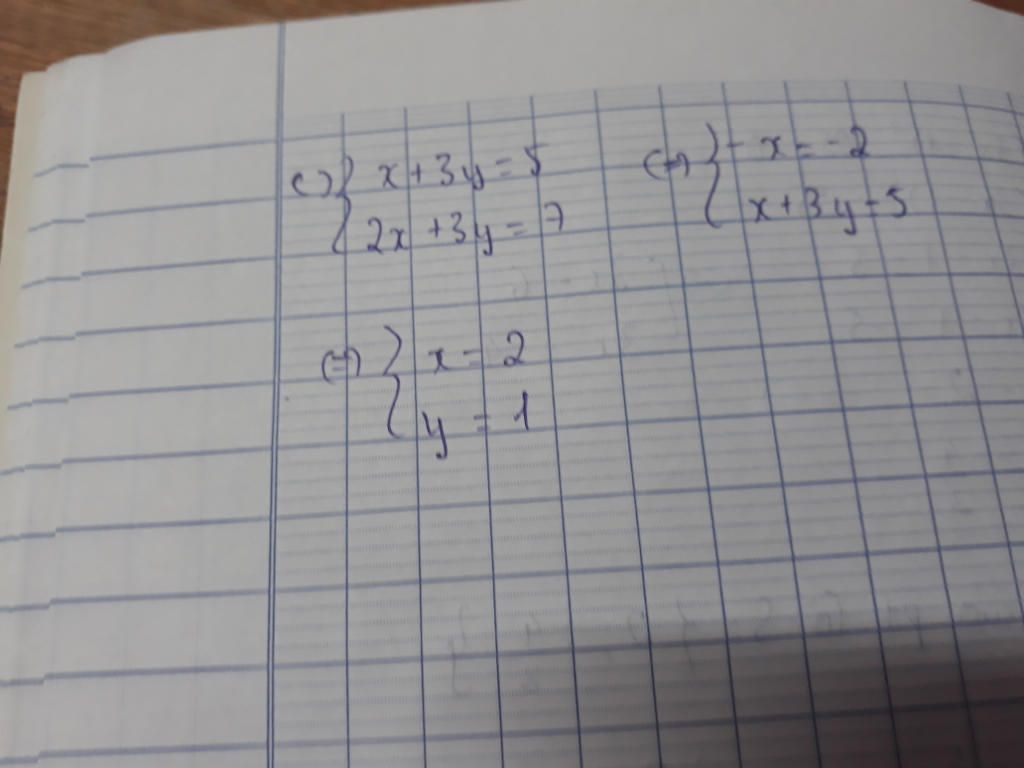 (-) { x + 3y = 5
2x + 3y = 7
(=) { - x = -2
x + 3y = 5
(=) { x = 2
y = 1